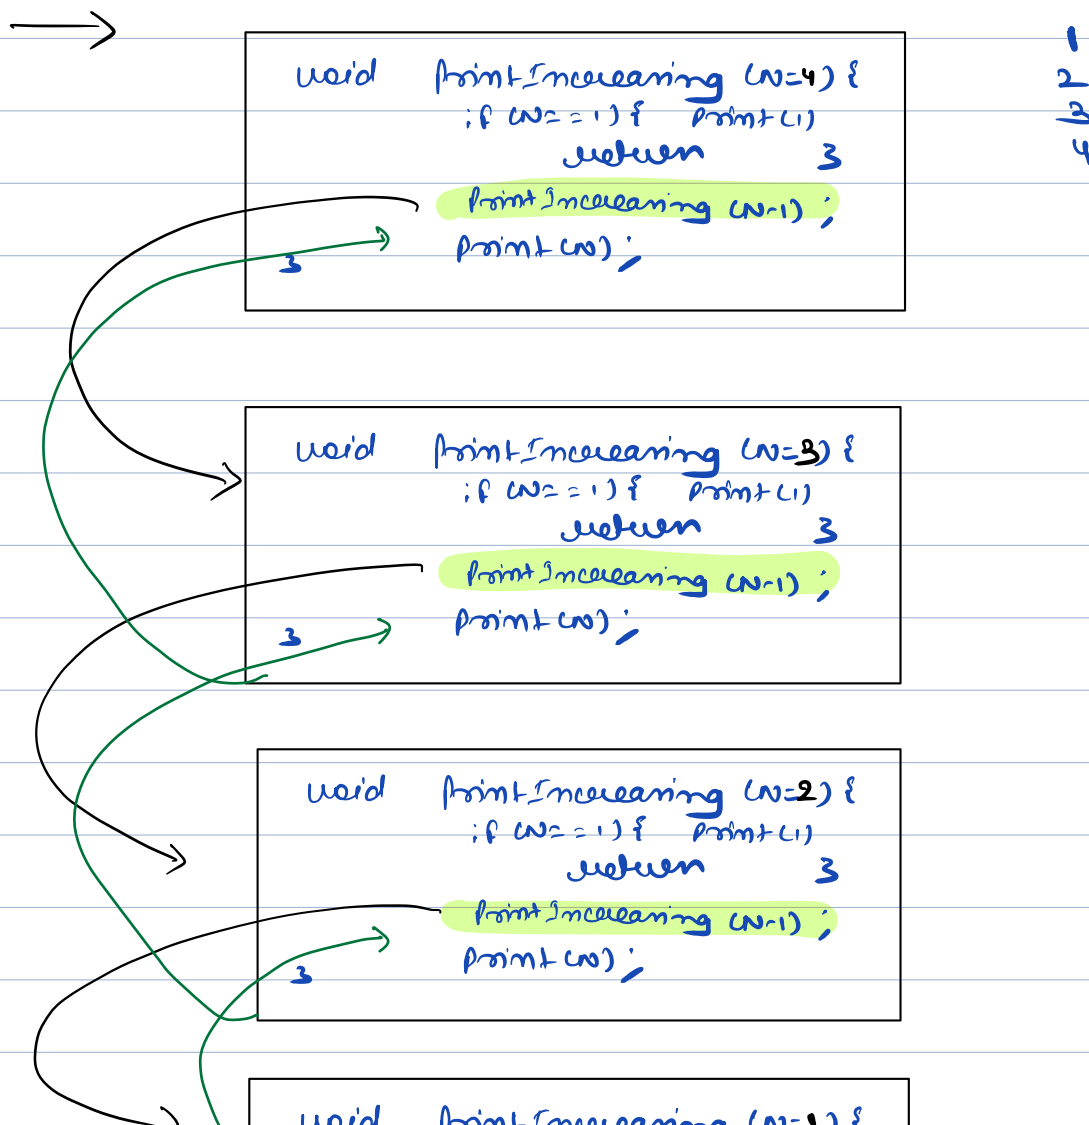 void PrintIncreasing (N=4) {
if (N==1) { Print(1)
return }
PrintIncreasing (N-1) ;
Print(N) ;
}
void PrintIncreasing (N=3) {
if (N==1) { Print(1)
return }
PrintIncreasing (N-1) ;
Print(N) ;
}
void PrintIncreasing (N=2) {
if (N==1) { Print(1)
return }
PrintIncreasing (N-1) ;
Print(N) ;
}
void PrintIncreasing (N=1) {
1
2
3
4